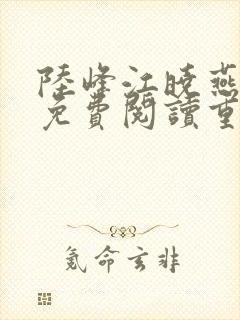 陸峰江曉燕
免費閱讀重
氪命玄非